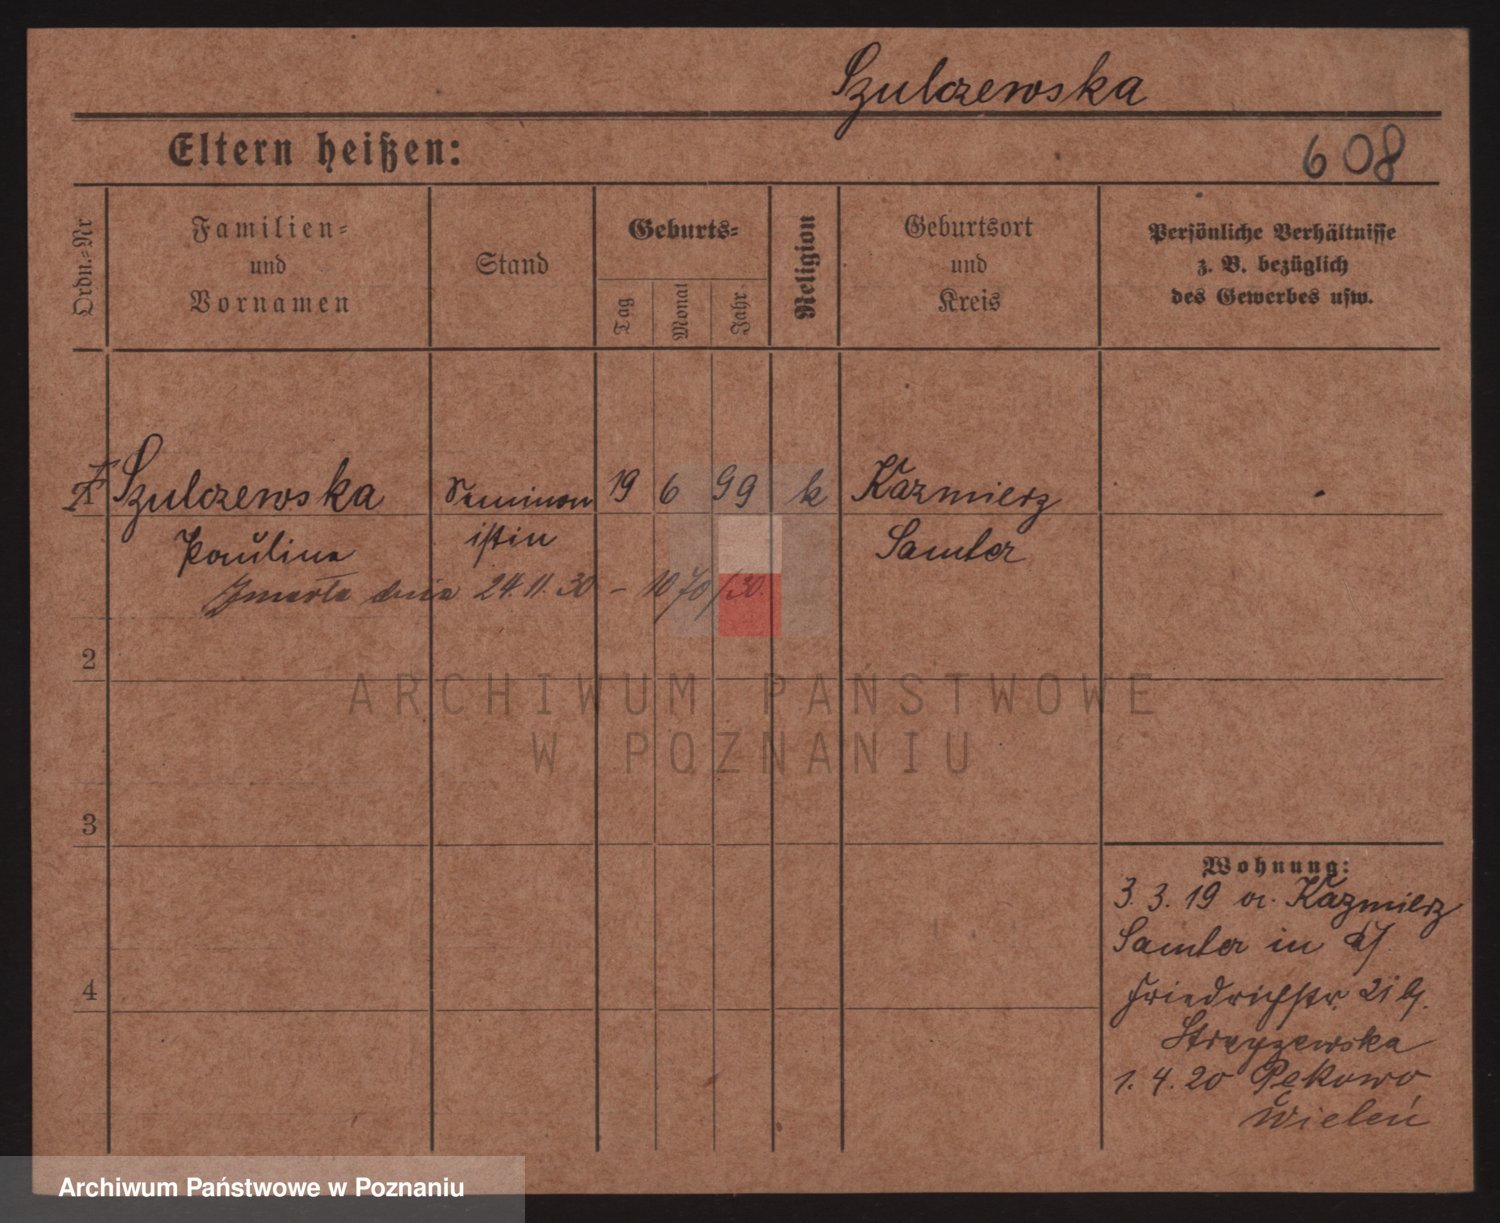 Szulczewska
Eltern heißen:
608
Ordn.-Nr
Familien-
und
Vornamen
Stand
Geburts-
Tag
Monat
Jahr
Religion
Geburtsort
und
Kreis
Persönliche Verhältnisse
z. B. bezüglich
des Gewerbes usw.
Szulczewska
Seminar
19 6 99 k
Kazmierz
Paulina
istin
Samter
Zmarła dnia 24.11.30 – 1070/30.
2
ARCHIWUM PAŃSTWOWE
W POZNANIU
3
4
Wohnung:
3. 3. 19 a. Kazmierz
Samter in
Friedrichstr. 21 b.
Stryzewska
1. 4. 20 Pękowo
Wieleń
Archiwum Państwowe w Poznaniu